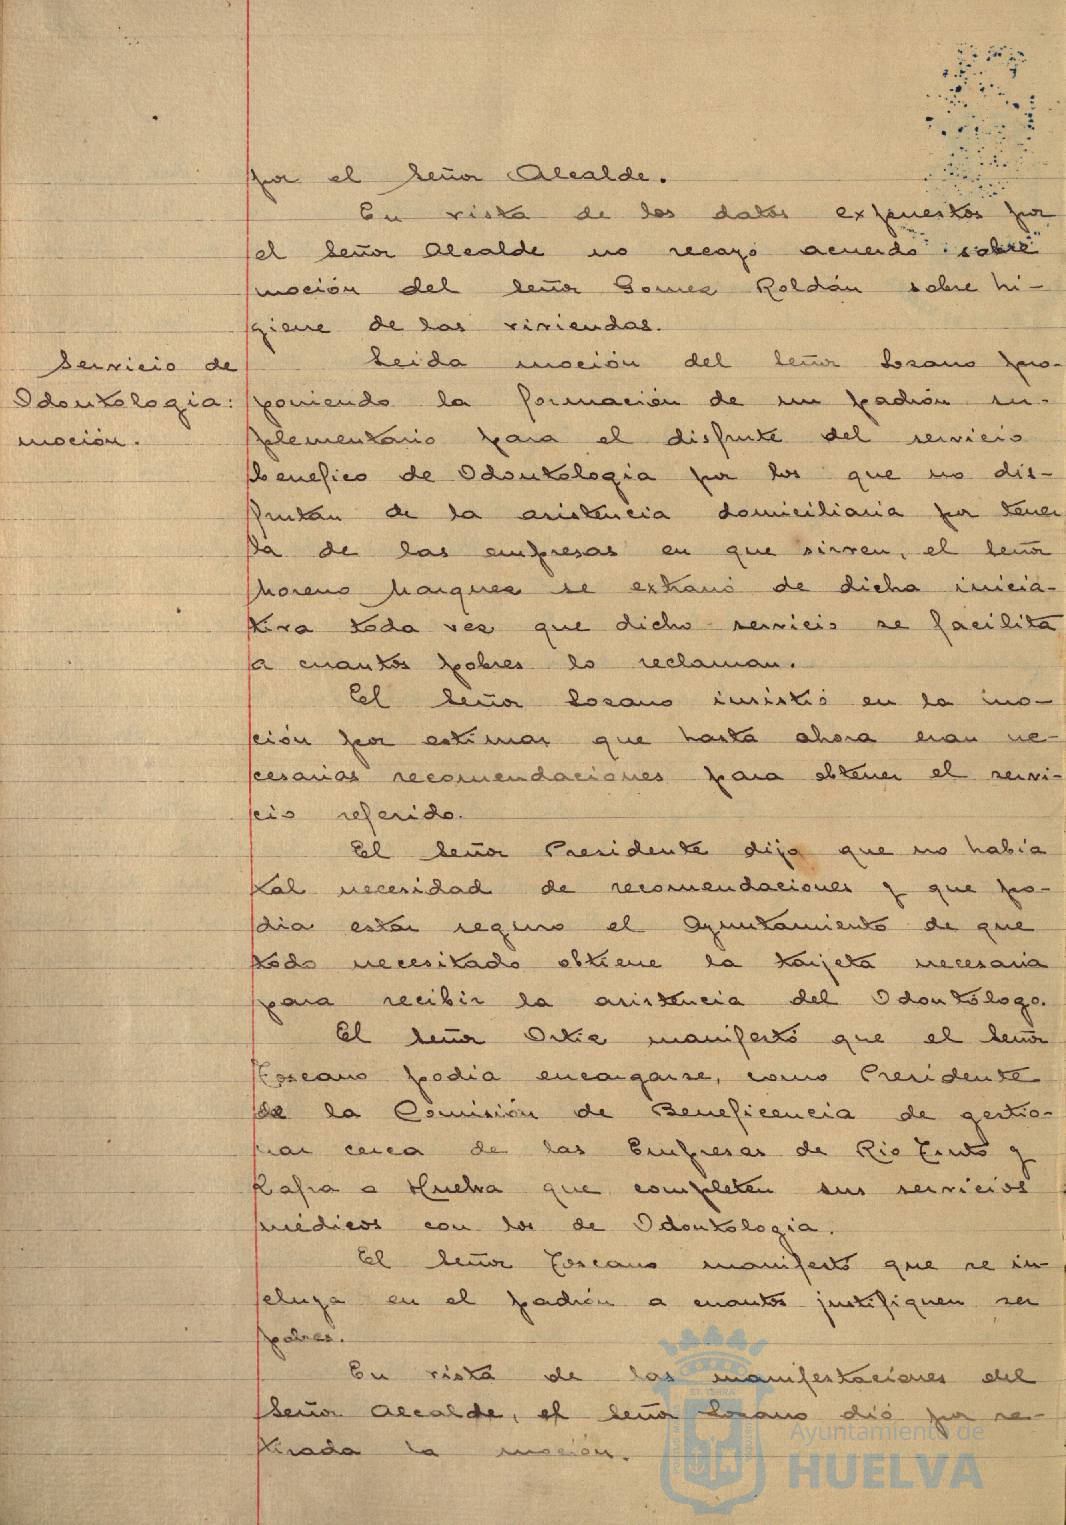 por el Señor Alcalde.
En vista de los datos expuestos por
el Señor Alcalde no recayó acuerdo sobre
moción del Señor Gomez Roldán sobre hi-
giene de las viviendas.
Servicio de
Odontologia:
moción.
Leida moción del Señor Lozano pro-
poniendo la formación de un padrón su-
plementario para el disfrute del servicio
benefico de Odontologia por los que no dis-
frutan de la asistencia domiciliaria por tener
la de las empresas en que sirven, el Señor
Moreno Marquez se extrañó de dicha inicia-
tiva toda vez que dicho servicio se facilita
a cuantos pobres lo reclaman.
El Señor Lozano insistió en la mo-
ción por estimar que hasta ahora eran ne-
cesarias recomendaciones para obtener el servi-
cio referido.
El Señor Presidente dijo que no habia
tal necesidad de recomendaciones y que po-
dia estar seguro el Ayuntamiento de que
todo necesitado obtiene la tarjeta necesaria
para recibir la asistencia del Odontólogo.
El Señor Ortiz manifestó que el Señor
Toscano podia encargarse, como Presidente
de la Comisión de Beneficencia de gestio-
nar cerca de las Empresas de Rio Tinto y
Zafra a Huelva que completen sus servicios
médicos con los de Odontologia.
El Señor Toscano manifestó que se in-
cluya en el padrón a cuantos justifiquen ser
pobres.
En vista de las manifestaciones del
Señor Alcalde, el Señor Lozano dió por re-
tirada la moción.
Ayuntamiento de
HUELVA